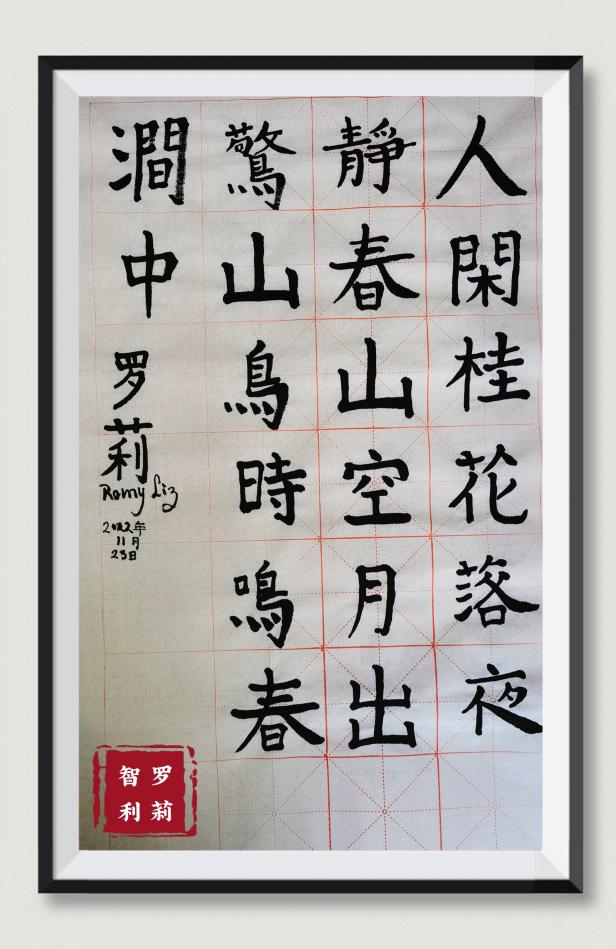 人閑桂花落夜
靜春山空月出
驚山鳥時鳴春
澗中
罗莉
Romy Liz
2022年
11月
23日
罗莉
智利